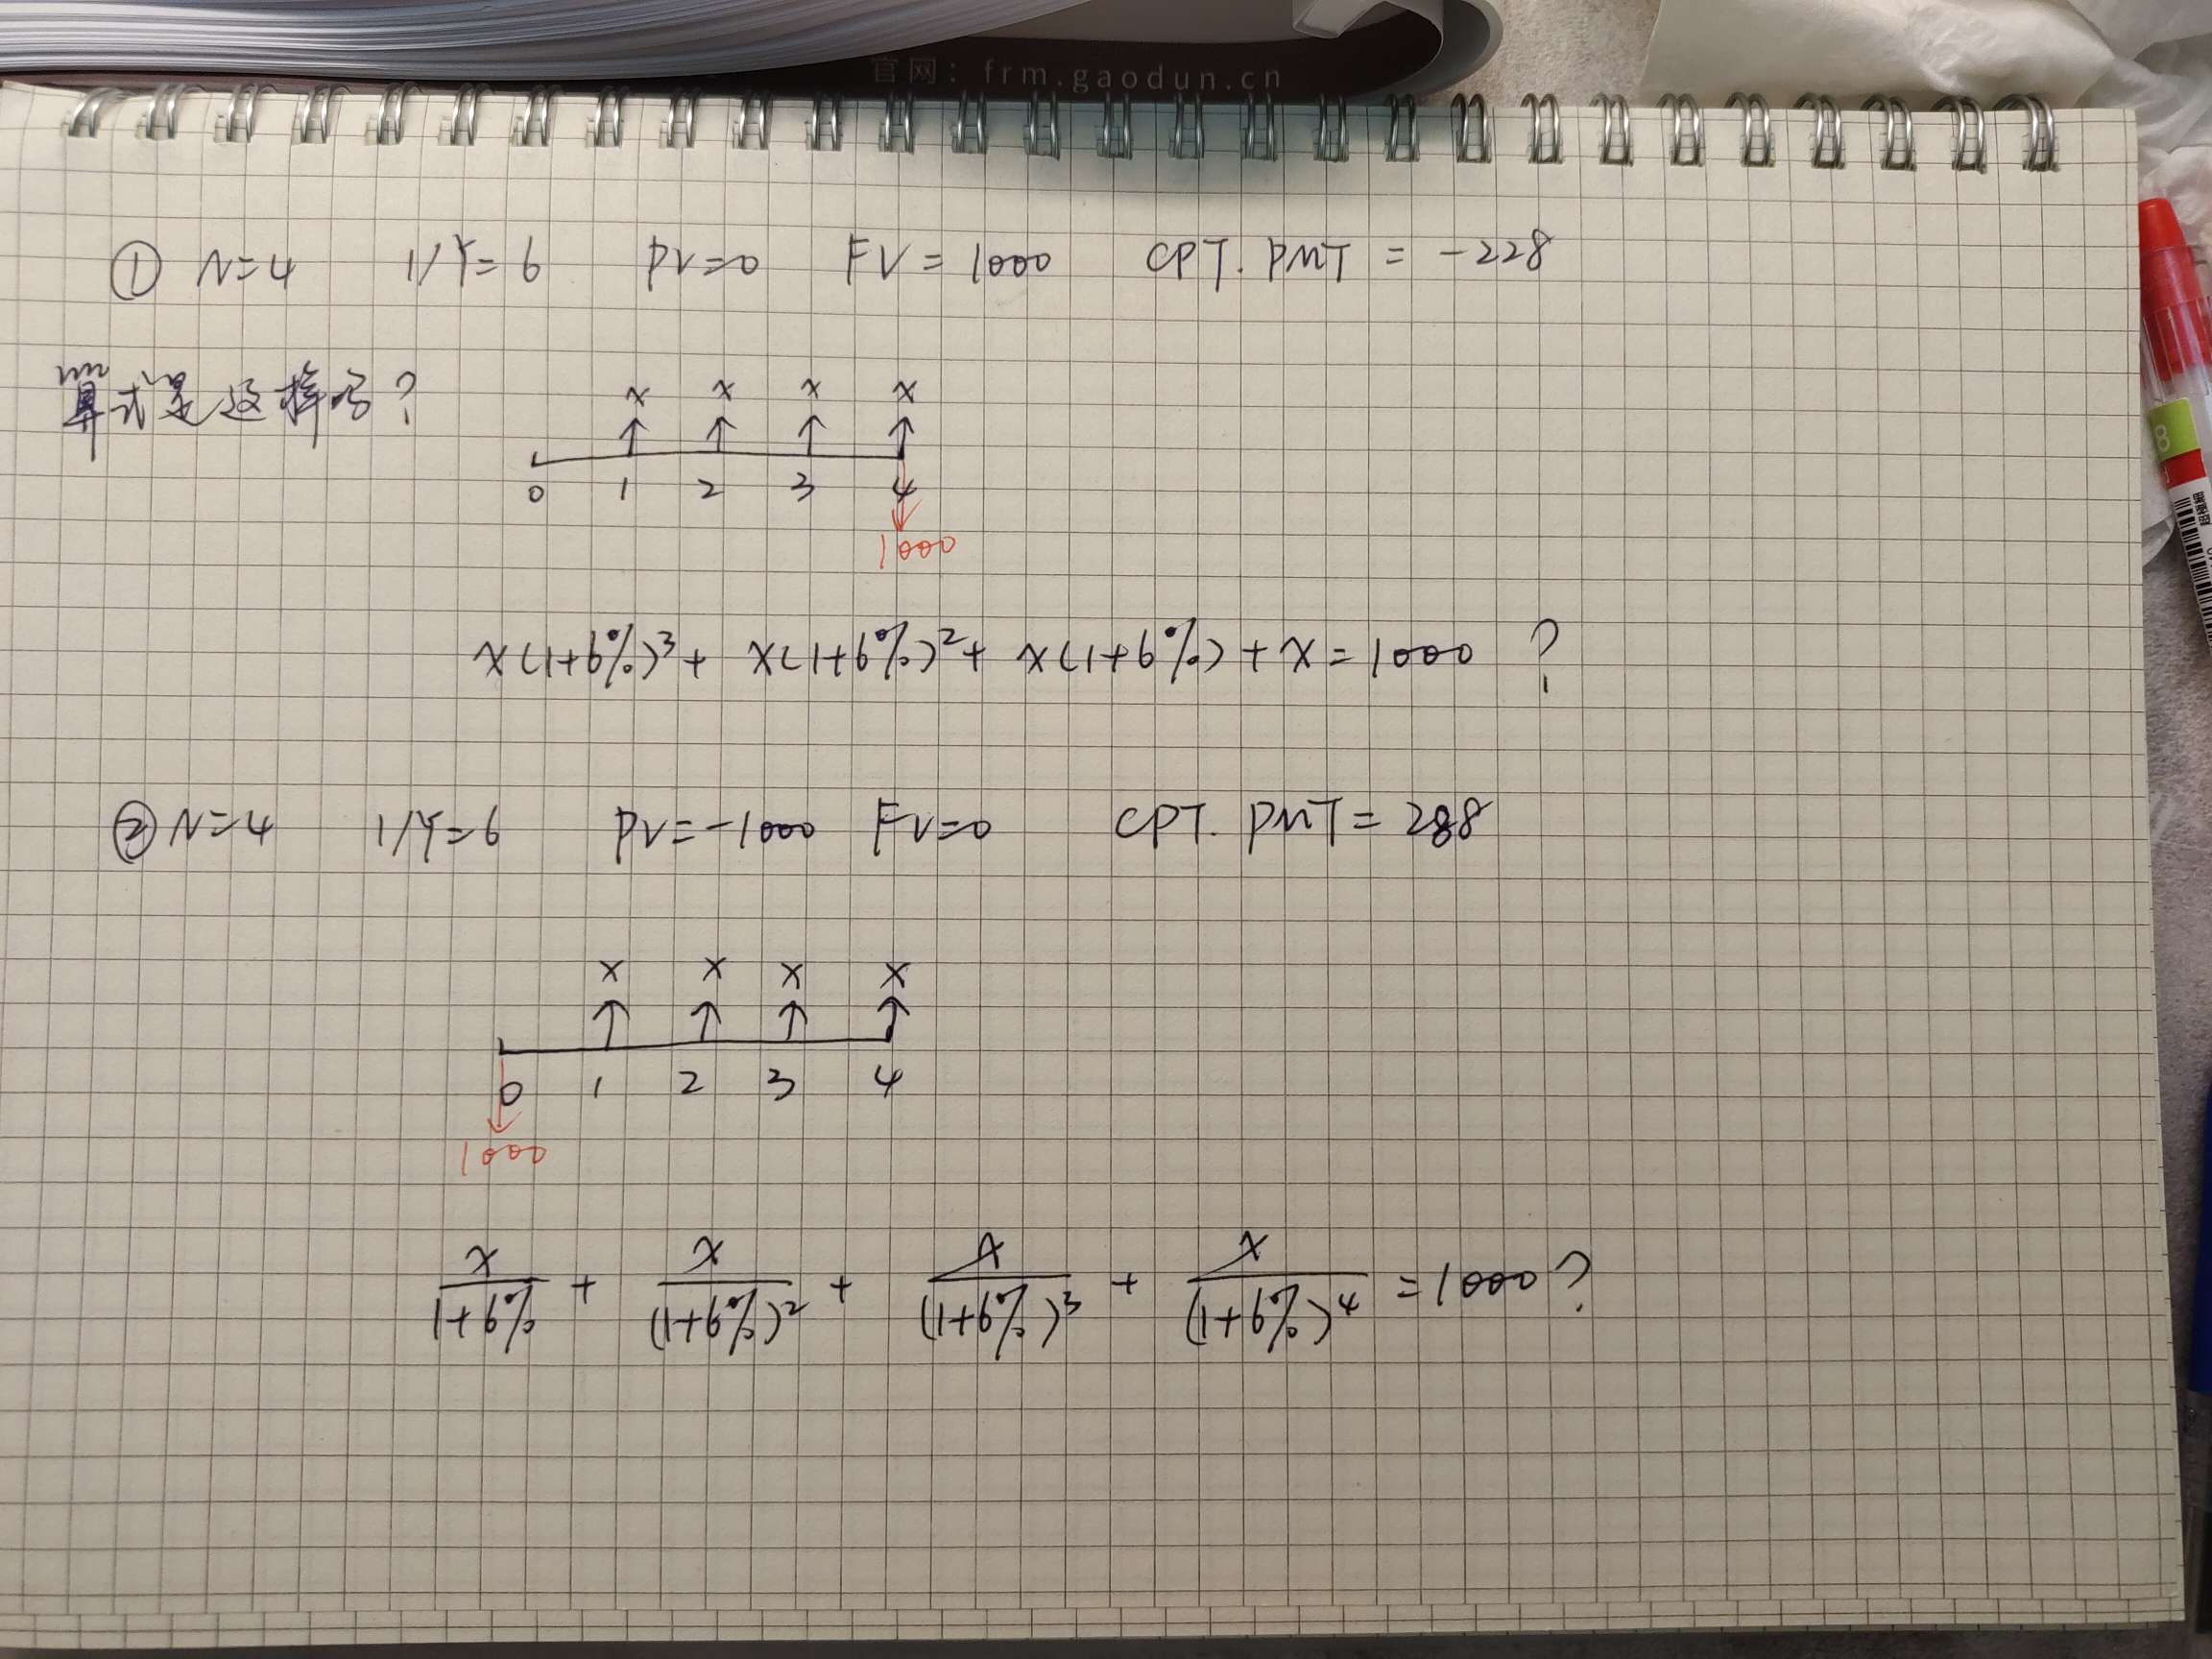 官网：frm.gaodun.cn
① N=4 I/Y=6 PV=0 FV=1000 CPT. PMT = -228
算式是这样吗?
x x x x
0 1 2 3 4
1000
x(1+6%)³+ x(1+6%)²+ x(1+6%)+x=1000 ?
② N=4 I/Y=6 PV=-1000 FV=0 CPT. PMT=288
x x x x
0 1 2 3 4
1000
x/(1+6%) + x/(1+6%)² + x/(1+6%)³ + x/(1+6%)⁴ =1000?
8